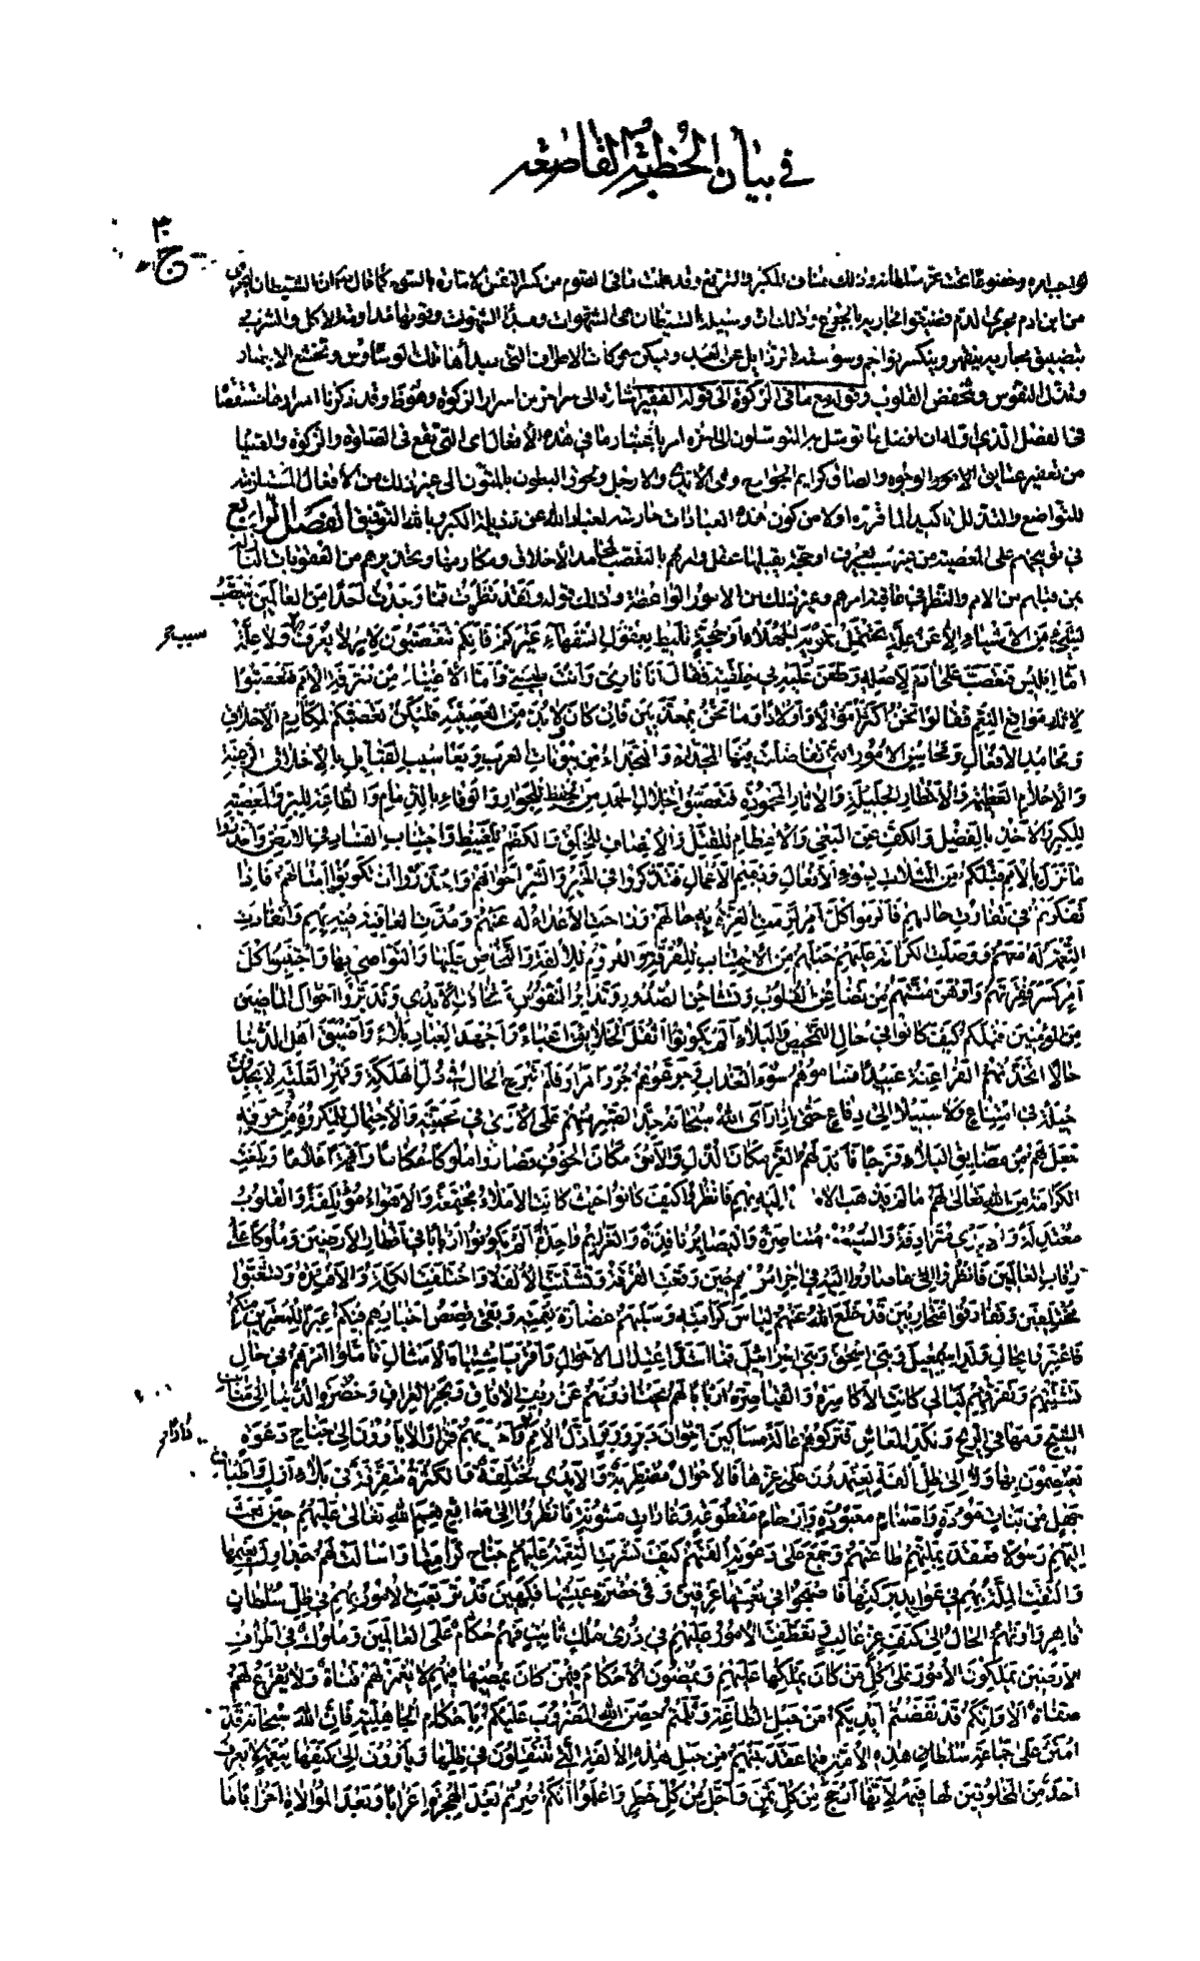 في بيان الخطبة القاصعة
ج ٣
من ابن ادم مجرى الدم فضيقوا مجاريه بالجوع وذلك ان وسيلة الشيطان هي الشهوات ومبدأ الشهوات وقوتها مداومة الاكل والشرب
وتذلل النفوس وتخفض القلوب وقوله مع ما في الزكوة الى قوله الفقر اشارة الى سر اخر من اسرار الزكوة وهو ظ وقد ذكرنا اسرارها مستقصاة
في الفصل الذي اوله ان افضل ما توسل به المتوسلون الى اخره امر باعتبار ما في هذه الافعال اى التي تقع في الصلوة والزكوة والصيام
من تعفير عتايق الوجوه والصاق كرايم الجوارح وهي الايدى والارجل ولحوق البطون بالمتون الى غير ذلك من الافعال المستلزمة
للتواضع والتذلل تاكيد لما قرره اولا من كون هذه العبادات حارسة لعباد الله عن رذيلة الكبر وبالله التوفيق الفصل الرابع
في توبيخهم على المعصية من غير سبب يعرف او حجة يقبلها عقل وامرهم بالتعصب لمحامد الاخلاق ومكارمها وتحذيرهم من العقوبات النازلة
بمن قبلهم من الامم والنظر في عاقبة امرهم وغير ذلك من الامور الواعظة وذلك قوله وَلَقَدْ نَظَرْتُ فَمَا وَجَدْتُ اَحَدًا مِنَ الْعَالَمِينَ يَتَعَصَّبُ
لِشَيْءٍ مِنَ الْاَشْيَاءِ اِلَّا عَنْ عِلَّةٍ تَحْتَمِلُ تَمْوِيهَ الْجُهَلَاءِ اَوْ حُجَّةٍ تَلِيطُ بِعُقُولِ السُّفَهَاءِ غَيْرَكُمْ فَاِنَّكُمْ تَتَعَصَّبُونَ لِاَمْرٍ لَا يُعْرَفُ لَهُ سَبَبٌ وَلَا عِلَّةٌ
اَمَّا اِبْلِيسُ فَتَعَصَّبَ عَلَى اٰدَمَ لِاَصْلِهِ وَطَعَنَ عَلَيْهِ فِي خِلْقَتِهِ فَقَالَ اَنَا نَارِيٌّ وَاَنْتَ طِينِيٌّ وَاَمَّا الْاَغْنِيَاءُ مِنْ مُتْرَفَةِ الْاُمَمِ فَتَعَصَّبُوا
لِاٰثَارِ مَوَاقِعِ النِّعَمِ فَقَالُوا نَحْنُ اَكْثَرُ اَمْوَالًا وَاَوْلَادًا وَمَا نَحْنُ بِمُعَذَّبِينَ فَاِنْ كَانَ لَا بُدَّ مِنَ الْعَصَبِيَّةِ فَلْيَكُنْ تَعَصُّبُكُمْ لِمَكَارِمِ الْاَخْلَاقِ
وَمَحَامِدِ الْاَفْعَالِ وَمَحَاسِنِ الْاُمُورِ الَّتِي تَفَاضَلَتْ فِيهَا الْمُجَدَاءُ وَالنُّجَدَاءُ مِنْ بُيُوتَاتِ الْعَرَبِ وَيَعَاسِيبِ الْقَبَايِلِ بِالْاَخْلَاقِ الرَّغِيبَةِ
وَالْاَحْلَامِ الْعَظِيمَةِ وَالْاَخْطَارِ الْجَلِيلَةِ وَالْاٰثَارِ الْمَحْمُودَةِ فَتَعَصَّبُوا لِخِلَالِ الْحَمْدِ مِنَ الْحِفْظِ لِلْجِوَارِ وَالْوَفَاءِ بِالذِّمَامِ وَالطَّاعَةِ لِلْبِرِّ وَالْمَعْصِيَةِ
لِلْكِبْرِ وَالْاَخْذِ بِالْفَضْلِ وَالْكَفِّ عَنِ الْبَغْيِ وَالْاِعْظَامِ لِلْقَتْلِ وَالْاِنْصَافِ لِلْخَلْقِ وَالْكَظْمِ لِلْغَيْظِ وَاجْتِنَابِ الْفَسَادِ فِي الْاَرْضِ وَاحْذَرُوا
مَا نَزَلَ بِالْاُمَمِ قَبْلَكُمْ مِنَ الْمَثُلَاتِ بِسُوءِ الْاَفْعَالِ وَذَمِيمِ الْاَعْمَالِ فَتَذَكَّرُوا فِي الْخَيْرِ وَالشَّرِّ اَحْوَالَهُمْ وَاحْذَرُوا اَنْ تَكُونُوا اَمْثَالَهُمْ فَاِذَا
تَفَكَّرْتُمْ فِي تَفَاوُتِ حَالَيْهِمْ فَالْزَمُوا كُلَّ اَمْرٍ لَزِمَتِ الْعِزَّةُ بِهِ حَالَهُمْ وَزَاحَتِ الْاَعْدَاءُ لَهُ عَنْهُمْ وَمُدَّتِ الْعَافِيَةُ فِيهِ بِهِمْ وَانْقَادَتِ
النِّعْمَةُ لَهُ مَعَهُمْ وَوَصَلَتِ الْكَرَامَةُ عَلَيْهِ حَبْلَهُمْ مِنَ الْاِجْتِنَابِ لِلْفُرْقَةِ وَاللُّزُومِ لِلْاُلْفَةِ وَالتَّحَاضِّ عَلَيْهَا وَالتَّوَاصِي بِهَا وَاجْتَنِبُوا كُلَّ
اَمْرٍ كَسَرَ فِقْرَتَهُمْ وَاَوْهَنَ مُنَّتَهُمْ مِنْ تَضَاغُنِ الْقُلُوبِ وَتَشَاحُنِ الصُّدُورِ وَتَدَابُرِ النُّفُوسِ وَتَخَاذُلِ الْاَيْدِي وَتَدَبَّرُوا اَحْوَالَ الْمَاضِينَ
مِنَ الْمُؤْمِنِينَ قَبْلَكُمْ كَيْفَ كَانُوا فِي حَالِ التَّمْحِيصِ وَالْبَلَاءِ اَلَمْ يَكُونُوا اَثْقَلَ الْخَلَايِقِ اَعْبَاءً وَاَجْهَدَ الْعِبَادِ بَلَاءً وَاَضْيَقَ اَهْلِ الدُّنْيَا
حَالًا اتَّخَذَتْهُمُ الْفَرَاعِنَةُ عَبِيدًا فَسَامُوهُمْ سُوءَ الْعَذَابِ وَجَرَّعُوهُمُ الْمُرَارَ فَلَمْ تَبْرَحِ الْحَالُ بِهِمْ فِي ذُلِّ الْهَلَكَةِ وَقَهْرِ الْغَلَبَةِ لَا يَجِدُونَ
حِيلَةً فِي امْتِنَاعٍ وَلَا سَبِيلًا اِلَى دِفَاعٍ حَتَّى اِذَا رَاَى اللّٰهُ سُبْحَانَهُ جِدَّ الصَّبْرِ مِنْهُمْ عَلَى الْاَذَى فِي مَحَبَّتِهِ وَالْاِحْتِمَالَ لِلْمَكْرُوهِ مِنْ خَوْفِهِ
جَعَلَ لَهُمْ مِنْ مَضَايِقِ الْبَلَاءِ فَرَجًا فَاَبْدَلَهُمُ الْعِزَّ مَكَانَ الذُّلِّ وَالْاَمْنَ مَكَانَ الْخَوْفِ فَصَارُوا مُلُوكًا حُكَّامًا وَاَئِمَّةً اَعْلَامًا وَبَلَغَتِ
الْكَرَامَةُ مِنَ اللّٰهِ تَعَالَى لَهُمْ مَا لَمْ تَذْهَبِ الْاٰمَالُ اِلَيْهِ بِهِمْ فَانْظُرُوا كَيْفَ كَانُوا حَيْثُ كَانَتِ الْاَمْلَاءُ مُجْتَمِعَةً وَالْاَهْوَاءُ مُؤْتَلِفَةً وَالْقُلُوبُ
مُعْتَدِلَةً وَالْاَيْدِي مُتَرَادِفَةً وَالسُّيُوفُ مُتَنَاصِرَةً وَالْبَصَايِرُ نَافِذَةً وَالْعَزَايِمُ وَاحِدَةً اَلَمْ يَكُونُوا اَرْبَابًا فِي اَقْطَارِ الْاَرَضِينَ وَمُلُوكًا عَلَى
رِقَابِ الْعَالَمِينَ فَانْظُرُوا اِلَى مَا صَارُوا اِلَيْهِ فِي اٰخِرِ اُمُورِهِمْ حِينَ وَقَعَتِ الْفُرْقَةُ وَتَشَتَّتَتِ الْاُلْفَةُ وَاخْتَلَفَتِ الْكَلِمَةُ وَالْاَفْئِدَةُ وَتَشَعَّبُوا
مُخْتَلِفِينَ وَتَفَرَّقُوا مُتَحَارِبِينَ قَدْ خَلَعَ اللّٰهُ عَنْهُمْ لِبَاسَ كَرَامَتِهِ وَسَلَبَهُمْ غَضَارَةَ نِعْمَتِهِ وَبَقِيَ قَصَصُ اَخْبَارِهِمْ فِيكُمْ عِبَرًا لِلْمُعْتَبِرِينَ مِنْكُمْ
فَاعْتَبِرُوا بِحَالِ وَلَدِ اِسْمٰعِيلَ وَبَنِي اِسْحٰقَ وَبَنِي اِسْرَائِيلَ فَمَا اَشَدَّ اعْتِدَالَ الْاَحْوَالِ وَاَقْرَبَ اشْتِبَاهَ الْاَمْثَالِ تَاَمَّلُوا اَمْرَهُمْ فِي حَالِ
تَشَتُّتِهِمْ وَتَفَرُّقِهِمْ لَيَالِيَ كَانَتِ الْاَكَاسِرَةُ وَالْقَيَاصِرَةُ اَرْبَابًا لَهُمْ يَحْتَازُونَهُمْ عَنْ رِيفِ الْاٰفَاقِ وَبَحْرِ الْعِرَاقِ وَخُضْرَةِ الدُّنْيَا اِلَى مَنَابِتِ
الشِّيحِ وَمَهَافِي الرِّيحِ وَنَكَدِ الْمَعَاشِ فَتَرَكُوهُمْ عَالَةً مَسَاكِينَ اِخْوَانَ دَبَرٍ وَوَبَرٍ اَذَلَّ الْاُمَمِ دَارًا وَاَجْدَبَهُمْ قَرَارًا لَا يَأْوُونَ اِلَى جَنَاحِ دَعْوَةٍ
يَعْتَصِمُونَ بِهَا وَلَا اِلَى ظِلِّ اُلْفَةٍ يَعْتَمِدُونَ عَلَى عِزِّهَا فَالْاَحْوَالُ مُضْطَرِبَةٌ وَالْاَيْدِي مُخْتَلِفَةٌ وَالْكَثْرَةُ مُتَفَرِّقَةٌ فِي بَلَاءِ اَزْلٍ وَاَطْبَاقِ
جَهْلٍ مِنْ بَنَاتٍ مَوْءُودَةٍ وَاَصْنَامٍ مَعْبُودَةٍ وَاَرْحَامٍ مَقْطُوعَةٍ وَغَارَاتٍ مَشْنُونَةٍ فَانْظُرُوا اِلَى مَوَاقِعِ نِعَمِ اللّٰهِ تَعَالَى عَلَيْهِمْ حِينَ بَعَثَ
اِلَيْهِمْ رَسُولًا فَعَقَدَ بِمِلَّتِهِ طَاعَتَهُمْ وَجَمَعَ عَلَى دَعْوَتِهِ اُلْفَتَهُمْ كَيْفَ نَشَرَتِ النِّعْمَةُ عَلَيْهِمْ جَنَاحَ كَرَامَتِهَا وَاَسَالَتْ لَهُمْ جَدَاوِلَ نَعِيمِهَا
وَالْتَفَّتِ الْمِلَّةُ بِهِمْ فِي عَوَايِدِ بَرَكَتِهَا فَاَصْبَحُوا فِي نِعْمَتِهَا غَرِقِينَ وَفِي خُضْرَةِ عَيْشِهَا فَكِهِينَ قَدْ تَرَبَّعَتِ الْاُمُورُ بِهِمْ فِي ظِلِّ سُلْطَانٍ
قَاهِرٍ وَاٰوَتْهُمُ الْحَالُ اِلَى كَنَفِ عِزٍّ غَالِبٍ وَتَعَطَّفَتِ الْاُمُورُ عَلَيْهِمْ فِي ذُرَى مُلْكٍ ثَابِتٍ فَهُمْ حُكَّامٌ عَلَى الْعَالَمِينَ وَمُلُوكٌ فِي اَطْرَافِ
الْاَرَضِينَ يَمْلِكُونَ الْاُمُورَ عَلَى مَنْ كَانَ يَمْلِكُهَا عَلَيْهِمْ وَيُمْضُونَ الْاَحْكَامَ فِيمَنْ كَانَ يُمْضِيهَا فِيهِمْ لَا تُغْمَزُ لَهُمْ قَنَاةٌ وَلَا تُقْرَعُ لَهُمْ
صَفَاةٌ اَلَا وَاِنَّكُمْ قَدْ نَفَضْتُمْ اَيْدِيَكُمْ مِنْ حَبْلِ الطَّاعَةِ وَثَلَمْتُمْ حِصْنَ اللّٰهِ الْمَضْرُوبَ عَلَيْكُمْ بِاَحْكَامِ الْجَاهِلِيَّةِ فَاِنَّ اللّٰهَ سُبْحَانَهُ قَدِ
امْتَنَّ عَلَى جَمَاعَةِ هٰذِهِ الْاُمَّةِ فِيمَا عَقَدَ بَيْنَهُمْ مِنْ حَبْلِ هٰذِهِ الْاُلْفَةِ الَّتِي يَنْتَقِلُونَ فِي ظِلِّهَا وَيَأْوُونَ اِلَى كَنَفِهَا بِنِعْمَةٍ لَا يَعْرِفُ
اَحَدٌ مِنَ الْمَخْلُوقِينَ لَهَا قِيمَةً لِاَنَّهَا اَرْجَحُ مِنْ كُلِّ ثَمَنٍ وَاَجَلُّ مِنْ كُلِّ خَطَرٍ وَاعْلَمُوا اَنَّكُمْ صِرْتُمْ بَعْدَ الْهِجْرَةِ اَعْرَابًا وَبَعْدَ الْمُوَالَاةِ اَحْزَابًا مَا